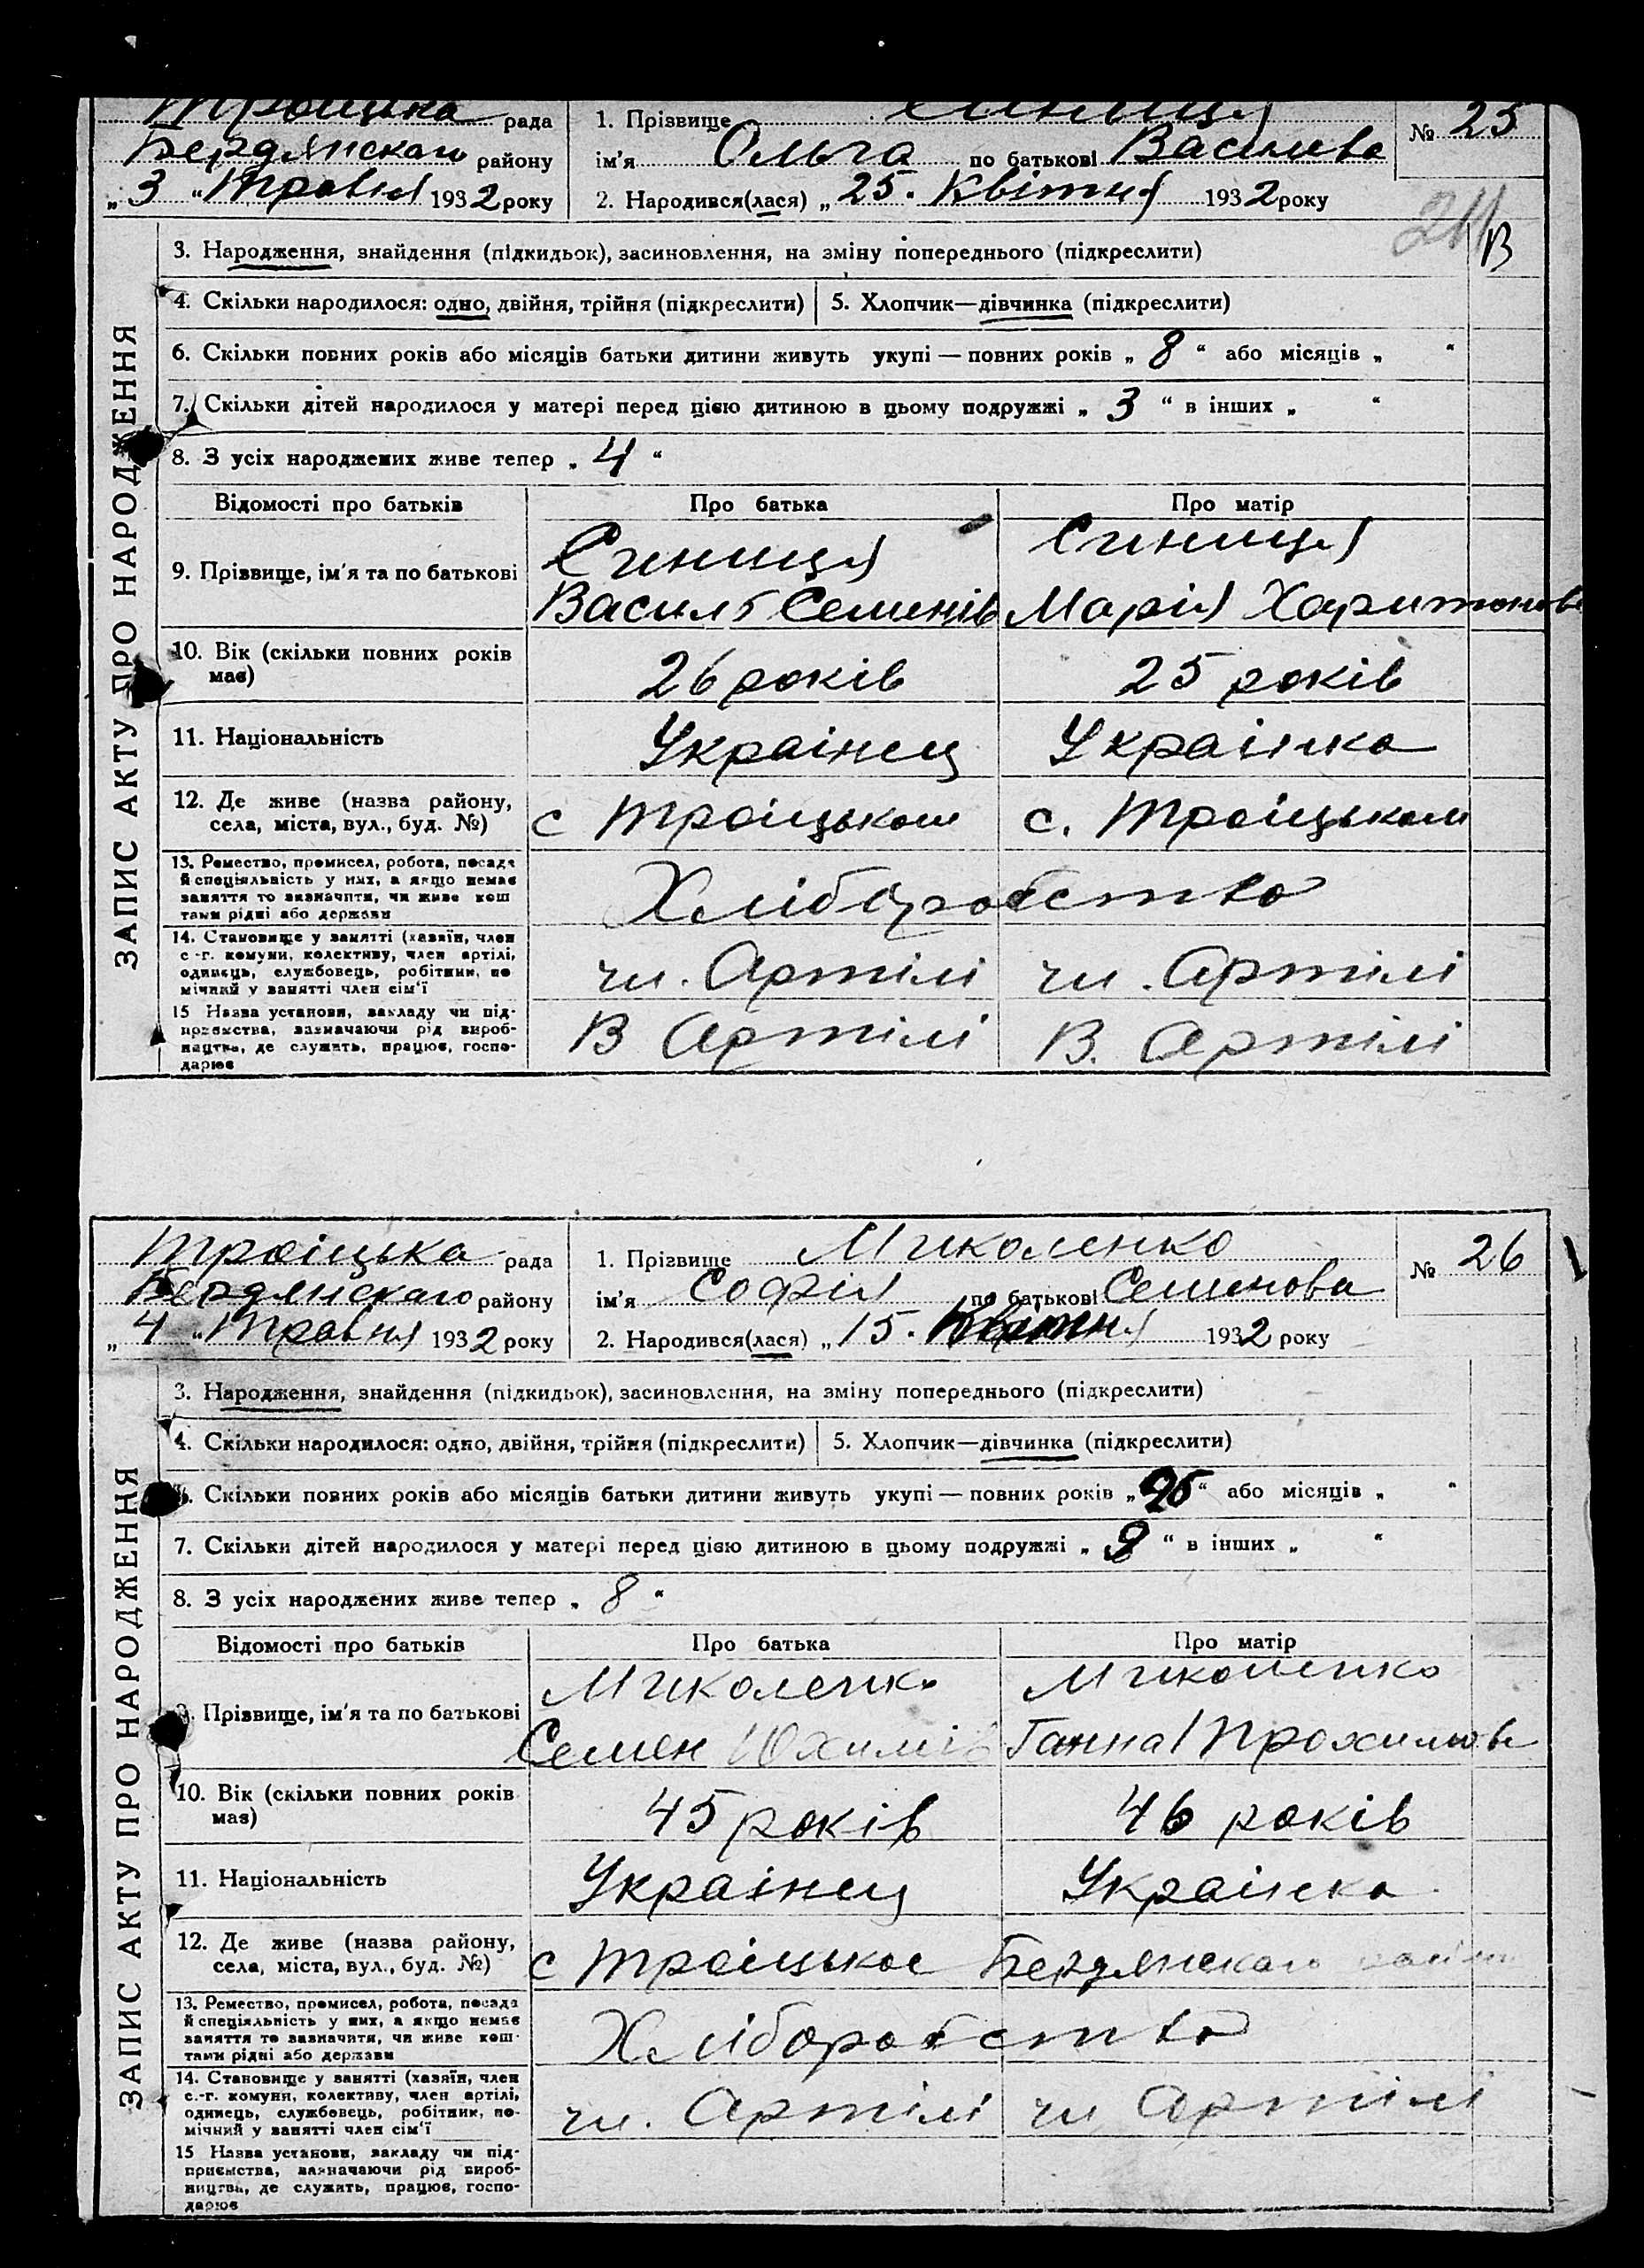 Троіцька рада
Бердянскаго району
„3“ Травня 1932 року
1. Прізвище Синиця
ім’я Ольга по батькові Василева
2. Народився(лася) „25. Квітня 1932 року
№ 25
211
В
ЗАПИС АКТУ ПРО НАРОДЖЕННЯ
3. Народження, знайдення (підкидьок), засиновлення, на зміну попереднього (підкреслити)
4. Скільки народилося: одно, двійня, трійня (підкреслити) 5. Хлопчик—дівчинка (підкреслити)
6. Скільки повних років або місяців батьки дитини живуть укупі — повних років „ 8 “ або місяців „ “
7. Скільки дітей народилося у матері перед цією дитиною в цьому подружжі „ 3 “ в інших „ “
8. З усіх народжених живе тепер „ 4 “
Відомості про батьків Про батька Про матір
9. Прізвище, ім’я та по батькові
Синиця
Василь Семенів
Синиця
Марія Харитонова
10. Вік (скільки повних років
має)
26 років 25 років
11. Національність Украінец Украінка
12. Де живе (назва району,
села, міста, вул., буд. №)
с Троіцьком с. Троіцьком
13. Ремество, промисел, робота, посада
й спеціяльність у них, а якщо немає
заняття то зазначити, чи живе кош
тами рідні або держави
Хліборобство
14. Становище у занятті (хазяїн, член
с-г. комуни, колективу, член артілі,
одинець, службовець, робітник, по
мічний у занятті член сім’ї
чл. Артілі чл. Артілі
15 Назва установи, закладу чи під-
приємства, зазначаючи рід вироб-
ництва, де служить, працює, госпо-
дарює
В Артілі В. Артілі
Троіцька рада
Бердянскаго району
„4“ Травня 1932 року
1. Прізвище Миколенко
ім’я Софія по батькові Семенова
2. Народився(лася) „15. Квітня 1932 року
№ 26
ЗАПИС АКТУ ПРО НАРОДЖЕННЯ
3. Народження, знайдення (підкидьок), засиновлення, на зміну попереднього (підкреслити)
4. Скільки народилося: одно, двійня, трійня (підкреслити) 5. Хлопчик—дівчинка (підкреслити)
Скільки повних років або місяців батьки дитини живуть укупі — повних років „ “ або місяців „ “
7. Скільки дітей народилося у матері перед цією дитиною в цьому подружжі „ “ в інших „ “
8. З усіх народжених живе тепер „ 8 “
Відомості про батьків Про батька Про матір
Прізвище, ім’я та по батькові
Миколенко
Семен Юхимів
Миколенко
Ганна
10. Вік (скільки повних років
має)
45 років 46 років
11. Національність Украінец Украінска
12. Де живе (назва району,
села, міста, вул., буд. №)
с Троіцькое Бердянскаго
13. Ремество, промисел, робота, посада
й спеціяльність у них, а якщо немає
заняття то зазначити, чи живе кош-
тами рідні або держави
Хліборобство
14. Становище у занятті (хазяїн, член
с.-г. комуни, колективу, член артілі,
одинець, службовець, робітник, по-
мічний у занятті член сім’ї
чл. Артілі чл Артілі
15 Назва установи, закладу чи під-
приємства, зазначаючи рід вироб-
ництва, де служить, працює, госпо-
дарює